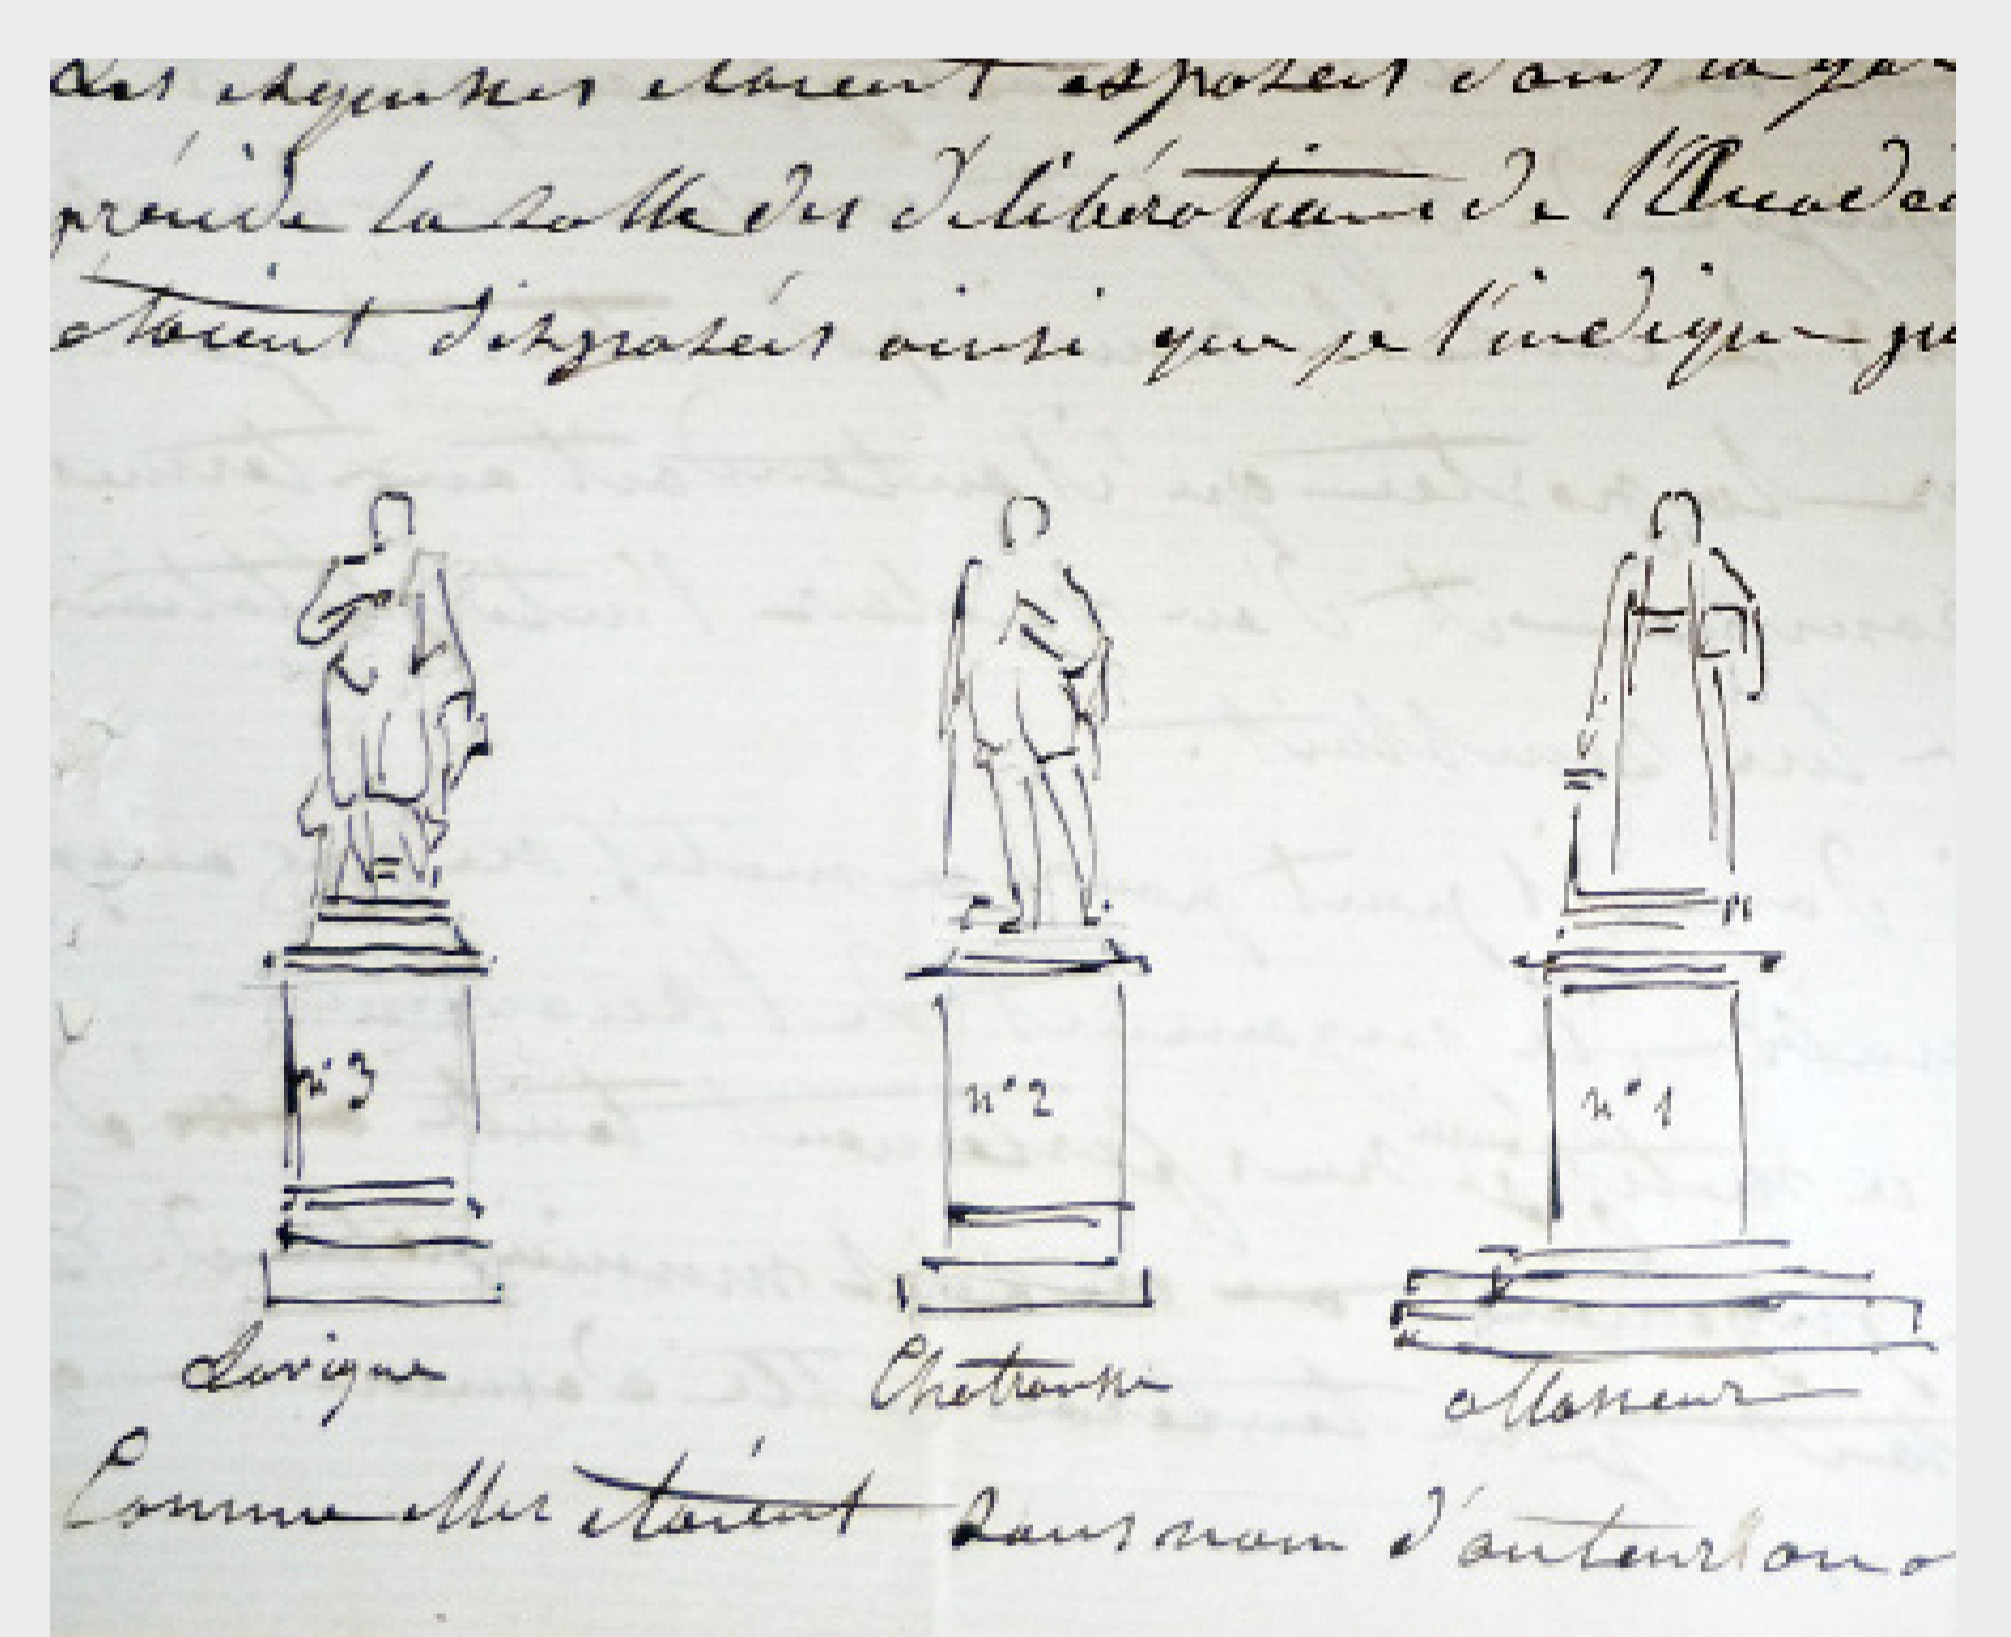 Les esquisses étaient exposées dans la ga
précède la salle des délibérations de l'Acadé
étaient disposées ainsi que je l'indique
n° 3 n° 2 n° 1
Lavigne Chatrousse Masseur
Comme elles étaient sans nom d'auteur on a